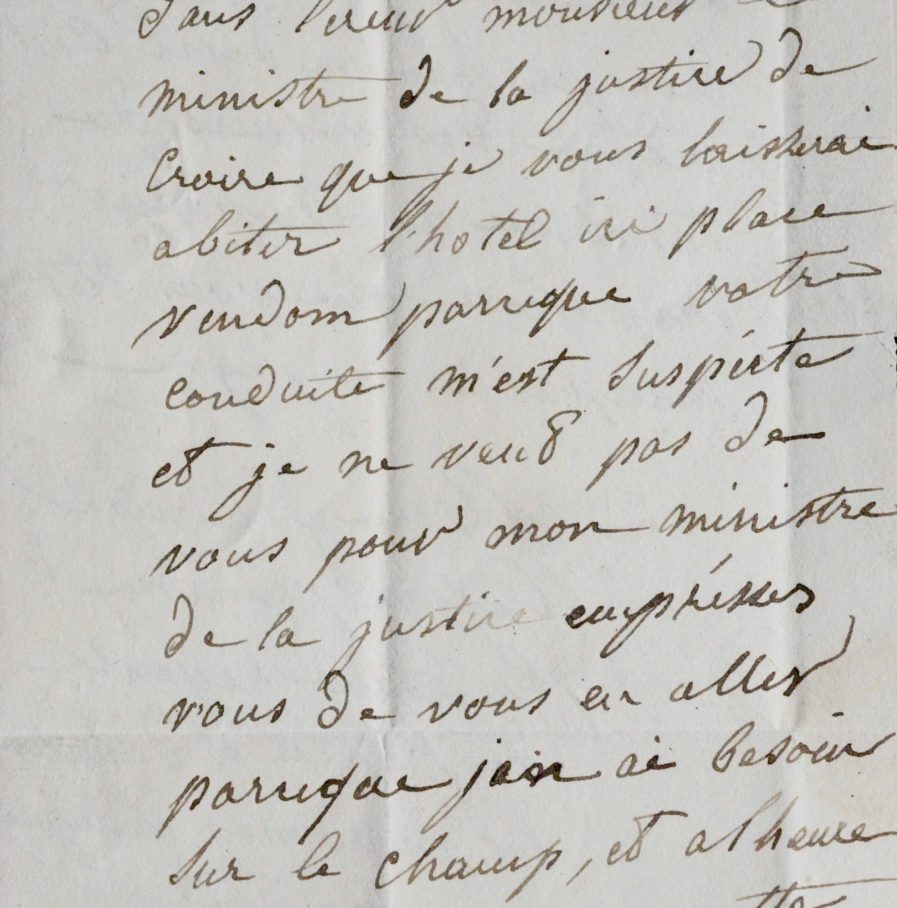 dans l'ereur monsieur le
ministre de la justice de
croire que je vous laisserai
abiter l'hotel ici place
vendom parceque votre
conduite m'est suspécte
et je ne veut pas de
vous pour mon ministre
de la justice empréssés
vous de vous en aller
parceque jan ai besoin
sur le champ, et alheure